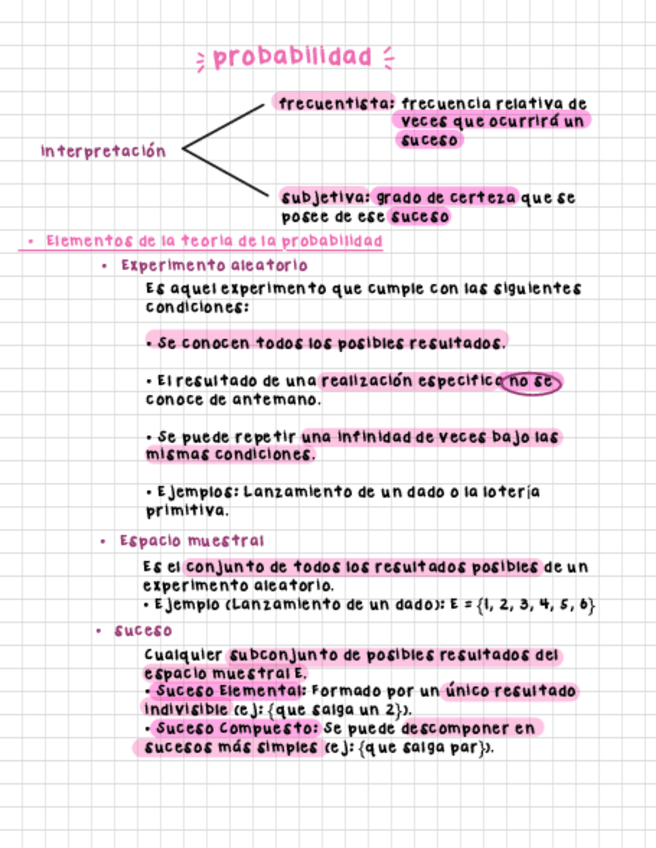 probabilidad
frecuentista: frecuencia relativa de
veces que ocurrirá un
suceso
interpretación
subjetiva: grado de certeza que se
posee de ese suceso
• Elementos de la teoria de la probabilidad
• Experimento aleatorio
Es aquel experimento que cumple con las siguientes
condiciones:
• Se conocen todos los posibles resultados.
• El resultado de una realización especifica no se
conoce de antemano.
• Se puede repetir una infinidad de veces bajo las
mismas condiciones.
• Ejemplos: Lanzamiento de un dado o la lotería
primitiva.
• Espacio muestral
Es el conjunto de todos los resultados posibles de un
experimento aleatorio.
• Ejemplo (Lanzamiento de un dado): E = {1, 2, 3, 4, 5, 6}
• suceso
Cualquier subconjunto de posibles resultados del
espacio muestral E.
• Suceso Elemental: Formado por un único resultado
indivisible (ej: {que salga un 2}).
• Suceso Compuesto: Se puede descomponer en
sucesos más simples (ej: {que salga par}).